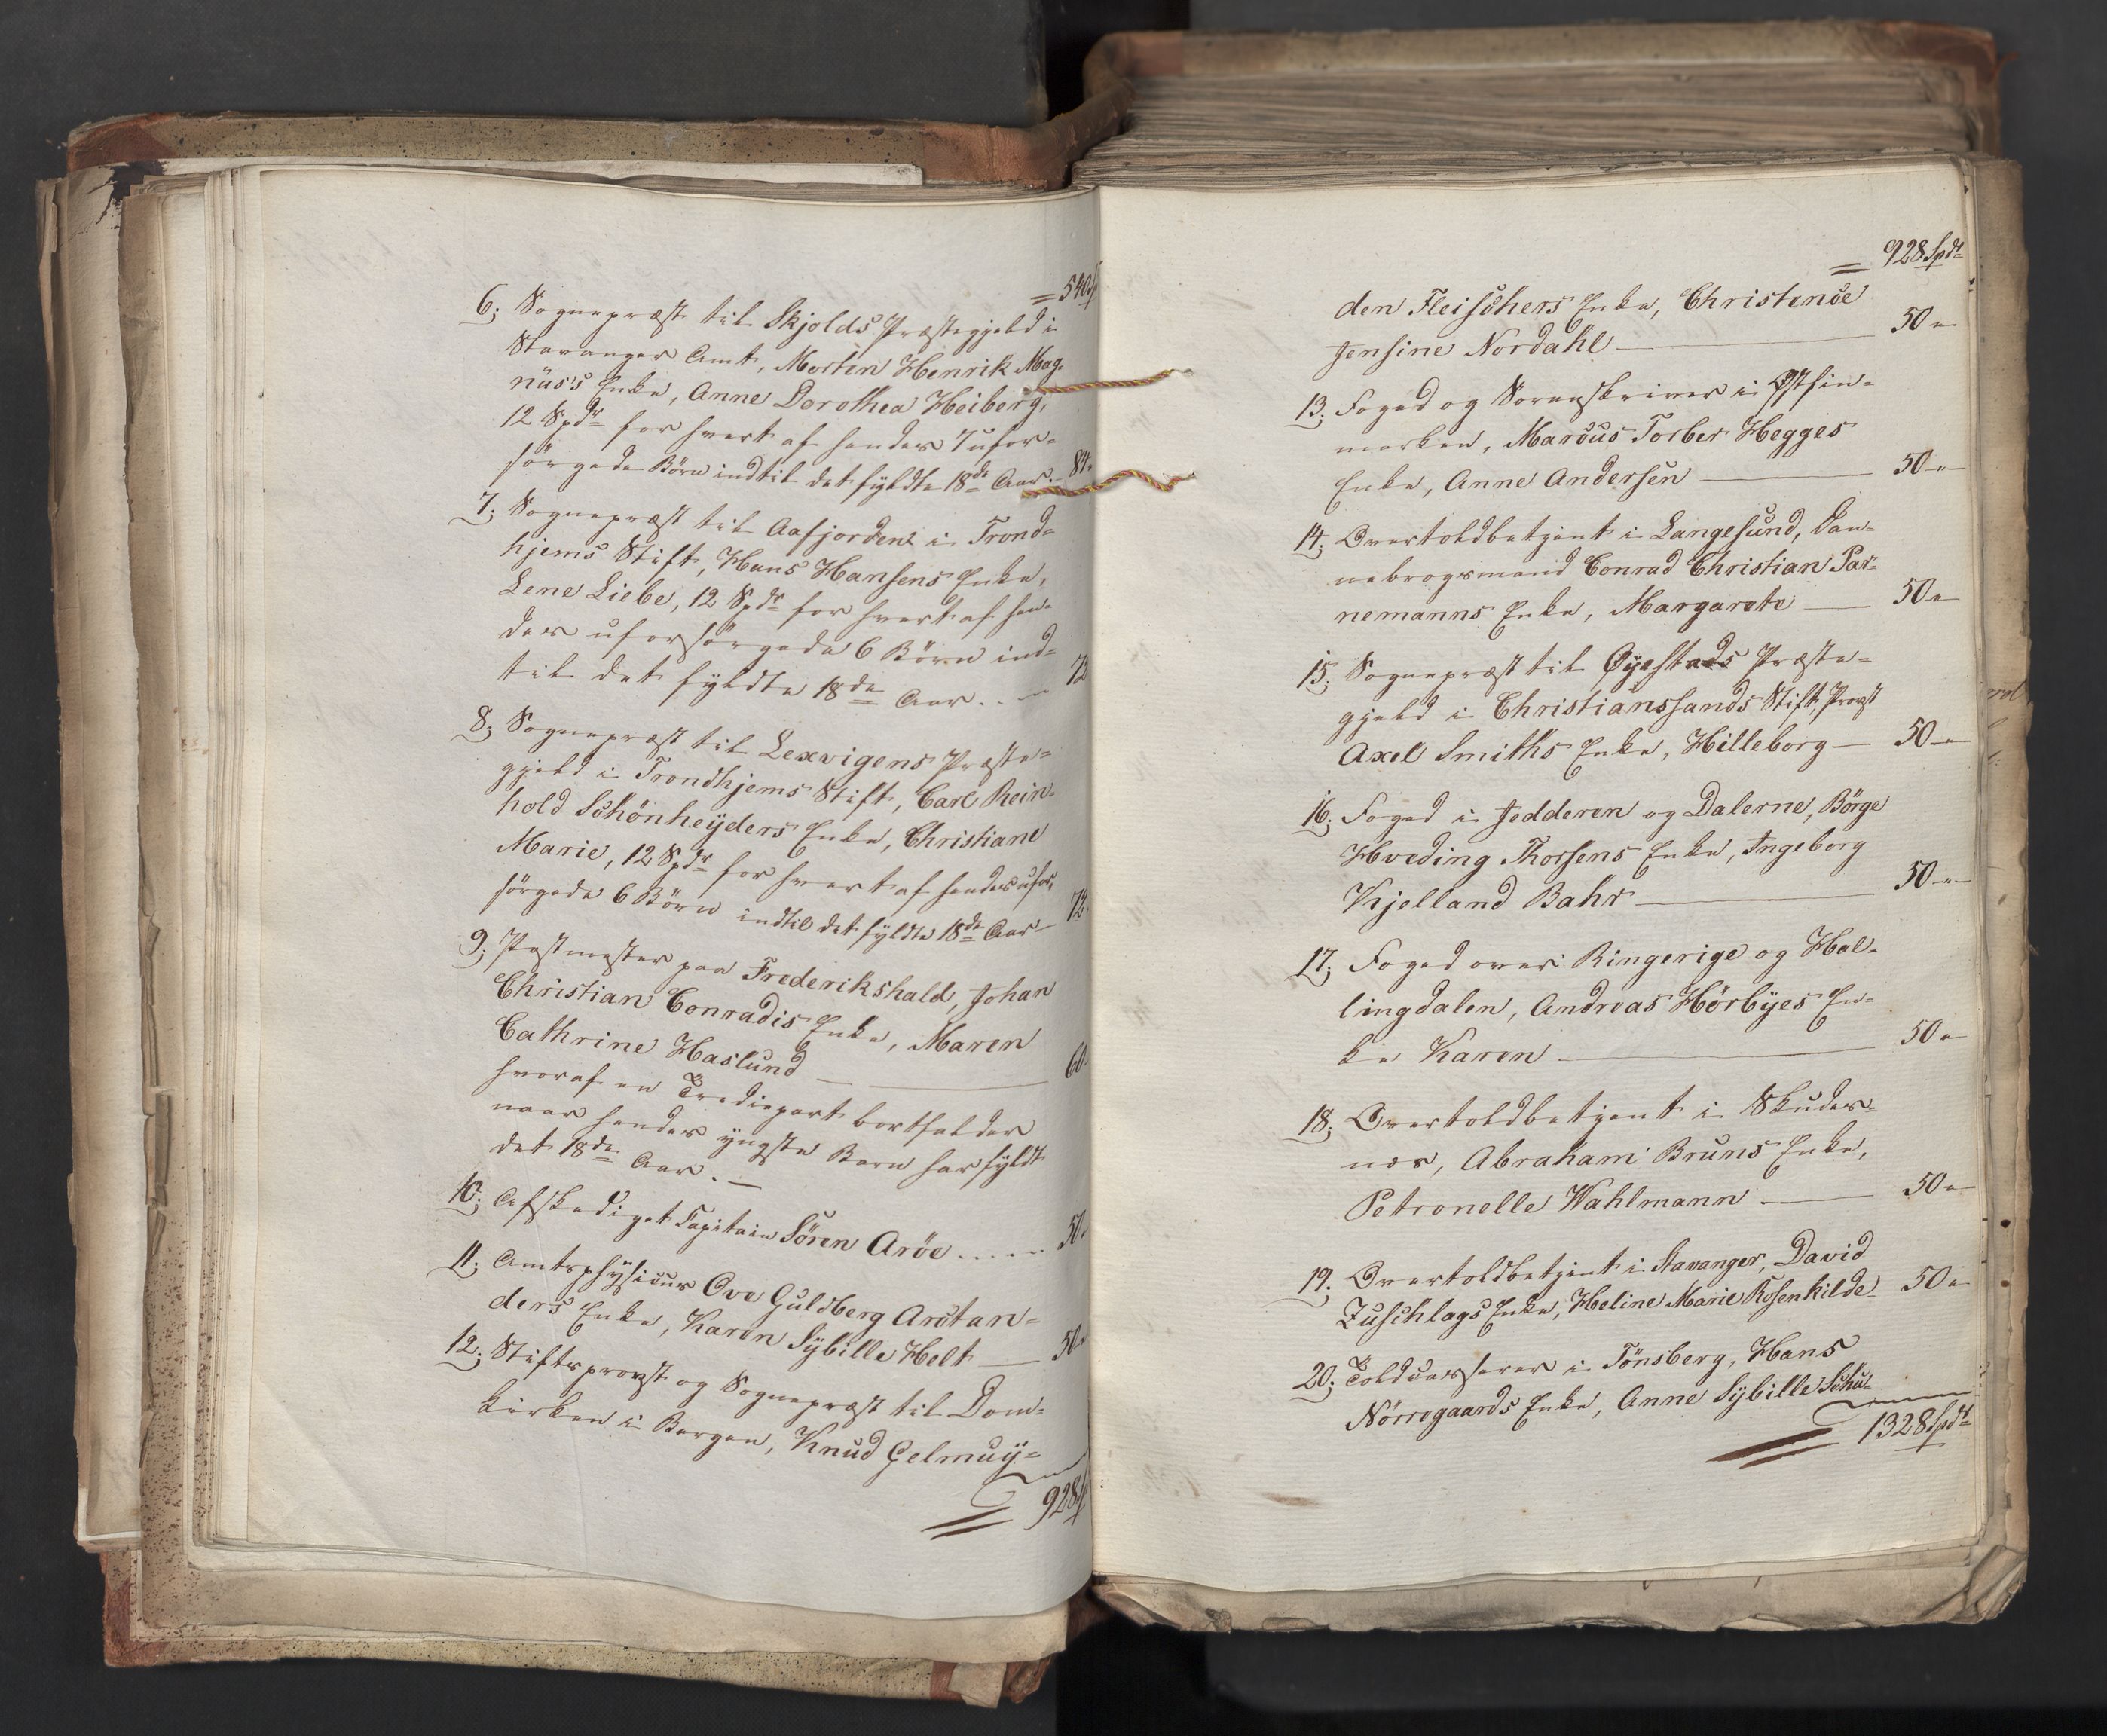 = 540 S
6; Sognepræst til Skjolds Præstegjeld i
Stavanger Amt, Morten Henrik Mag-
nus's Enke, Anne Dorothea Heiberg,
12 Spdr for hvert af hendes 7 ufor-
sørgede Børn indtil det fyldte 18de Aar.- 84 "
7; Sognepræst til Aafjorden i Trond-
hjems Stift, Hans Hansens Enke,
Lene Liebe, 12 Spdr for hvert af hen-
des uforsørgede 6 Børn ind-
til det fyldte 18de Aar. . — 72
8; Sognepræst til Lexvigens Præste-
gjeld i Trondhjems Stift, Carl Rein-
hold Schönheÿders Enke, Christiane
Marie, 12 Spdr for hvert af hendes ufor-
sørgede 6 Børn indtil det fyldte 18de Aar — 72 "
9; Postmester paa Frederikshald, Johan
Christian Conradis Enke, Maren
Cathrine Haslund — 60 "
hvoraf en Trediepart bortfalder
naar hendes yngste Barn har fyldt
det 18de Aar. —
10; Afskediget Capitain Sören Aröe . . . — 50 "
11; Amtsphysicus Ove Guldberg Arctan-
ders Enke, Karen Sÿbille Helt — 50 "
12; Stiftsprovst og Sognepræst til Dom-
kirken i Bergen, Knud Gelmuÿ-
928 S
= 928 Spdr
den Fleischers Enke, Christence
Jensine Nordahl — 50 "
13; Foged og Sorenskriver i Østfin-
marken, Marcus Torber Hegges
Enke, Anne Andersen — 50 — "
14; Overtoldbetjent i Langesund, Dan-
nebrogsmand Conrad Christian Par-
nemanns Enke, Margarete — 50 "
15; Sognepræst til Øyestads Præste-
gjeld i Christianssands Stift, Provst
Axel Smiths Enke, Hilleborg — 50 — "
16; Foged i Jedderen og Dalerne, Börge
Hveding Thorsens Enke, Ingeborg
Kjelland Bahr — 50 — "
17; Foged over Ringerige og Hal-
lingdalen, Andreas Hörbÿes En-
ke Karen — 50 "
18; Overtoldbetjent i Skudes-
nes, Abraham Bruns Enke,
Petronelle Wahlmann — 50 "
19; Overtoldbetjent i Stavanger, David
Zuschlags Enke, Heline Marie Rosenkilde — 50 "
20; Toldcasserer i Tönsberg, Hans
Nörregaards Enke, Anne Sÿbille Schü-
1328 Spdr